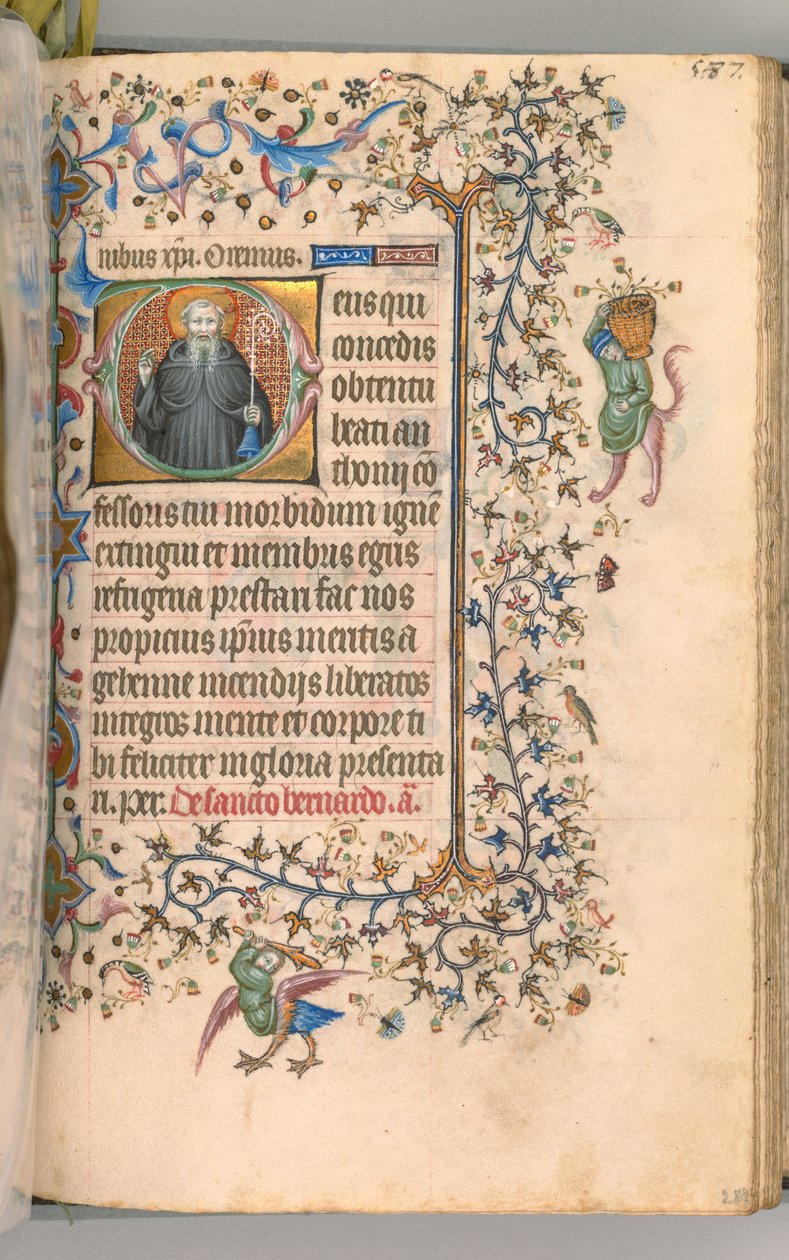 537.
nibus xpi. Oremus.
Deus qui
concedis
obtentu
beati an
thonij cō
fessoris tui morbidum ignē
extingui et membris egris
refrigeria prestari fac nos
propicius ip̄ius mentis a
gehenne incendijs liberatos
integros mente et corpore ti
bi feliciter in gloria presenta
ri. per. De sancto bernardo. a͞.